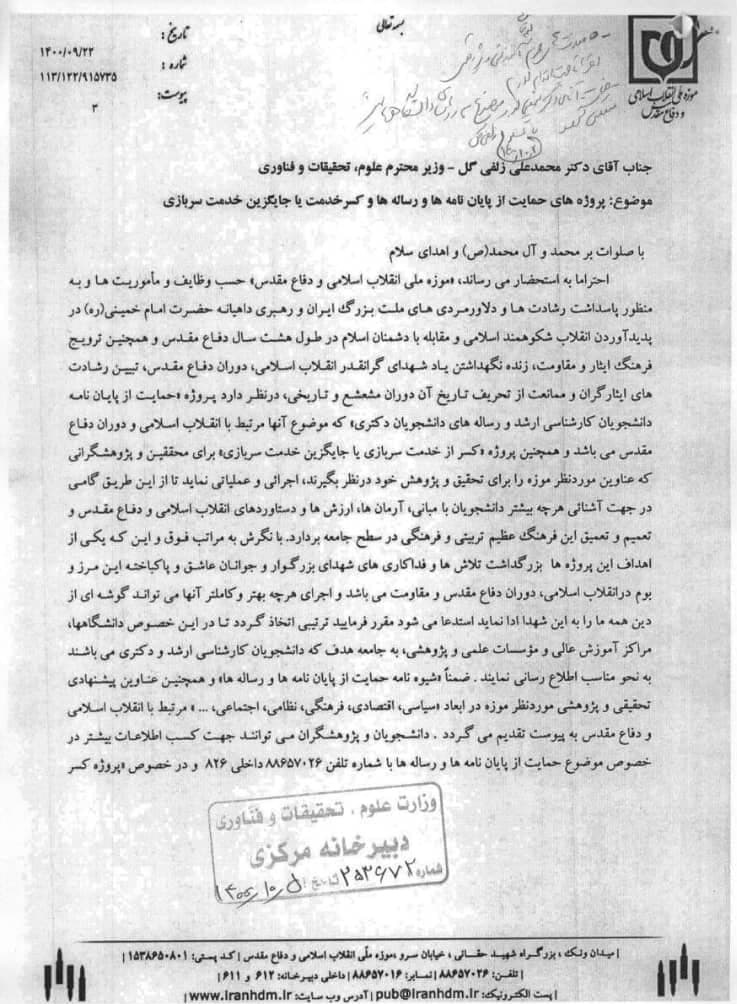 بسمه تعالی
تاریخ: ۱۴۰۰/۰۹/۲۲
شماره: ۱۱۳/۱۲۲/۹۱۵۷۳۵
پیوست: ۳
موزه ملی انقلاب اسلامی
و دفاع مقدس
جناب آقای دکتر محمدعلی زلفی گل - وزیر محترم علوم، تحقیقات و فناوری
موضوع: پروژه های حمایت از پایان نامه ها و رساله ها و کسرخدمت یا جایگزین خدمت سربازی
با صلوات بر محمد و آل محمد(ص) و اهدای سلام
احتراما به استحضار می رساند، «موزه ملی انقلاب اسلامی و دفاع مقدس» حسب وظایف و مأموریت ها و به
منظور پاسداشت رشادت ها و دلاورمردی های ملت بزرگ ایران و رهبری داهیانه حضرت امام خمینی(ره) در
پدیدآوردن انقلاب شکوهمند اسلامی و مقابله با دشمنان اسلام در طول هشت سال دفاع مقدس و همچنین ترویج
فرهنگ ایثار و مقاومت، زنده نگهداشتن یاد شهدای گرانقدر انقلاب اسلامی، دوران دفاع مقدس، تبیین رشادت
های ایثارگران و ممانعت از تحریف تاریخ آن دوران مشعشع و تاریخی، درنظر دارد پروژه «حمایت از پایان نامه
دانشجویان کارشناسی ارشد و رساله های دانشجویان دکتری» که موضوع آنها مرتبط با انقلاب اسلامی و دوران دفاع
مقدس می باشد و همچنین پروژه «کسر از خدمت سربازی یا جایگزین خدمت سربازی» برای محققین و پژوهشگرانی
که عناوین موردنظر موزه را برای تحقیق و پژوهش خود درنظر بگیرند، اجرائی و عملیاتی نماید تا از این طریق گامی
در جهت آشنائی هرچه بیشتر دانشجویان با مبانی، آرمان ها، ارزش ها و دستاوردهای انقلاب اسلامی و دفاع مقدس و
تعمیم و تعمیق این فرهنگ عظیم تربیتی و فرهنگی در سطح جامعه بردارد. با نگرش به مراتب فوق و این که یکی از
اهداف این پروژه ها بزرگداشت تلاش ها و فداکاری های شهدای بزرگوار و جوانان عاشق و پاکباخته این مرز و
بوم درانقلاب اسلامی، دوران دفاع مقدس و مقاومت می باشد و اجرای هرچه بهتر وکاملتر آنها می تواند گوشه ای از
دین همه ما را به این شهدا ادا نماید استدعا می شود مقرر فرمایید ترتیبی اتخاذ گردد تا در این خصوص دانشگاهها،
مراکز آموزش عالی و مؤسسات علمی و پژوهشی، به جامعه هدف که دانشجویان کارشناسی ارشد و دکتری می باشند
به نحو مناسب اطلاع رسانی نمایند . ضمناً «شیوه نامه حمایت از پایان نامه ها و رساله ها» و همچنین عناوین پیشنهادی
تحقیقی و پژوهشی موردنظر موزه در ابعاد «سیاسی، اقتصادی، فرهنگی، نظامی، اجتماعی، ... » مرتبط با انقلاب اسلامی
و دفاع مقدس به پیوست تقدیم می گردد . دانشجویان و پژوهشگران می توانند جهت کسب اطلاعات بیشتر در
خصوص موضوع حمایت از پایان نامه ها و رساله ها با شماره تلفن ۸۸۶۵۷۰۲۶ داخلی ۸۲۶ و در خصوص «پروژه کسر
وزارت علوم ، تحقیقات و فناوری
دبیرخانه مرکزی
شماره ۲۵۳۶۷۲ تاریخ
| میدان ونک، بزرگراه شهید حقانی ، خیابان سرو ،موزه ملّی انقلاب اسلامی و دفاع مقدس | کد پستی: ۱۵۳۸۶۵۰۸۰۱ |
| تلفن: ۸۸۶۵۷۰۲۶ | نمابر: ۸۸۶۵۷۰۱۶ | داخلی دبیرخانه: ۶۱۲ و ۶۱۱ |
| پست الکترونیک: pub@iranhdm.ir | آدرس وب سایت: www.iranhdm.ir |